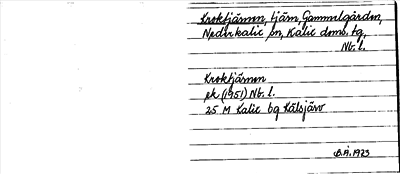 Kroktjärnen, tjärn, Gammelgården,
Nederkalix sn, Kalix doms. tg,
Nb. l.
Kroktjärnen
ek (1951) Nb. l.
25 M Kalix bq Kälsjärv
B.Å. 1973